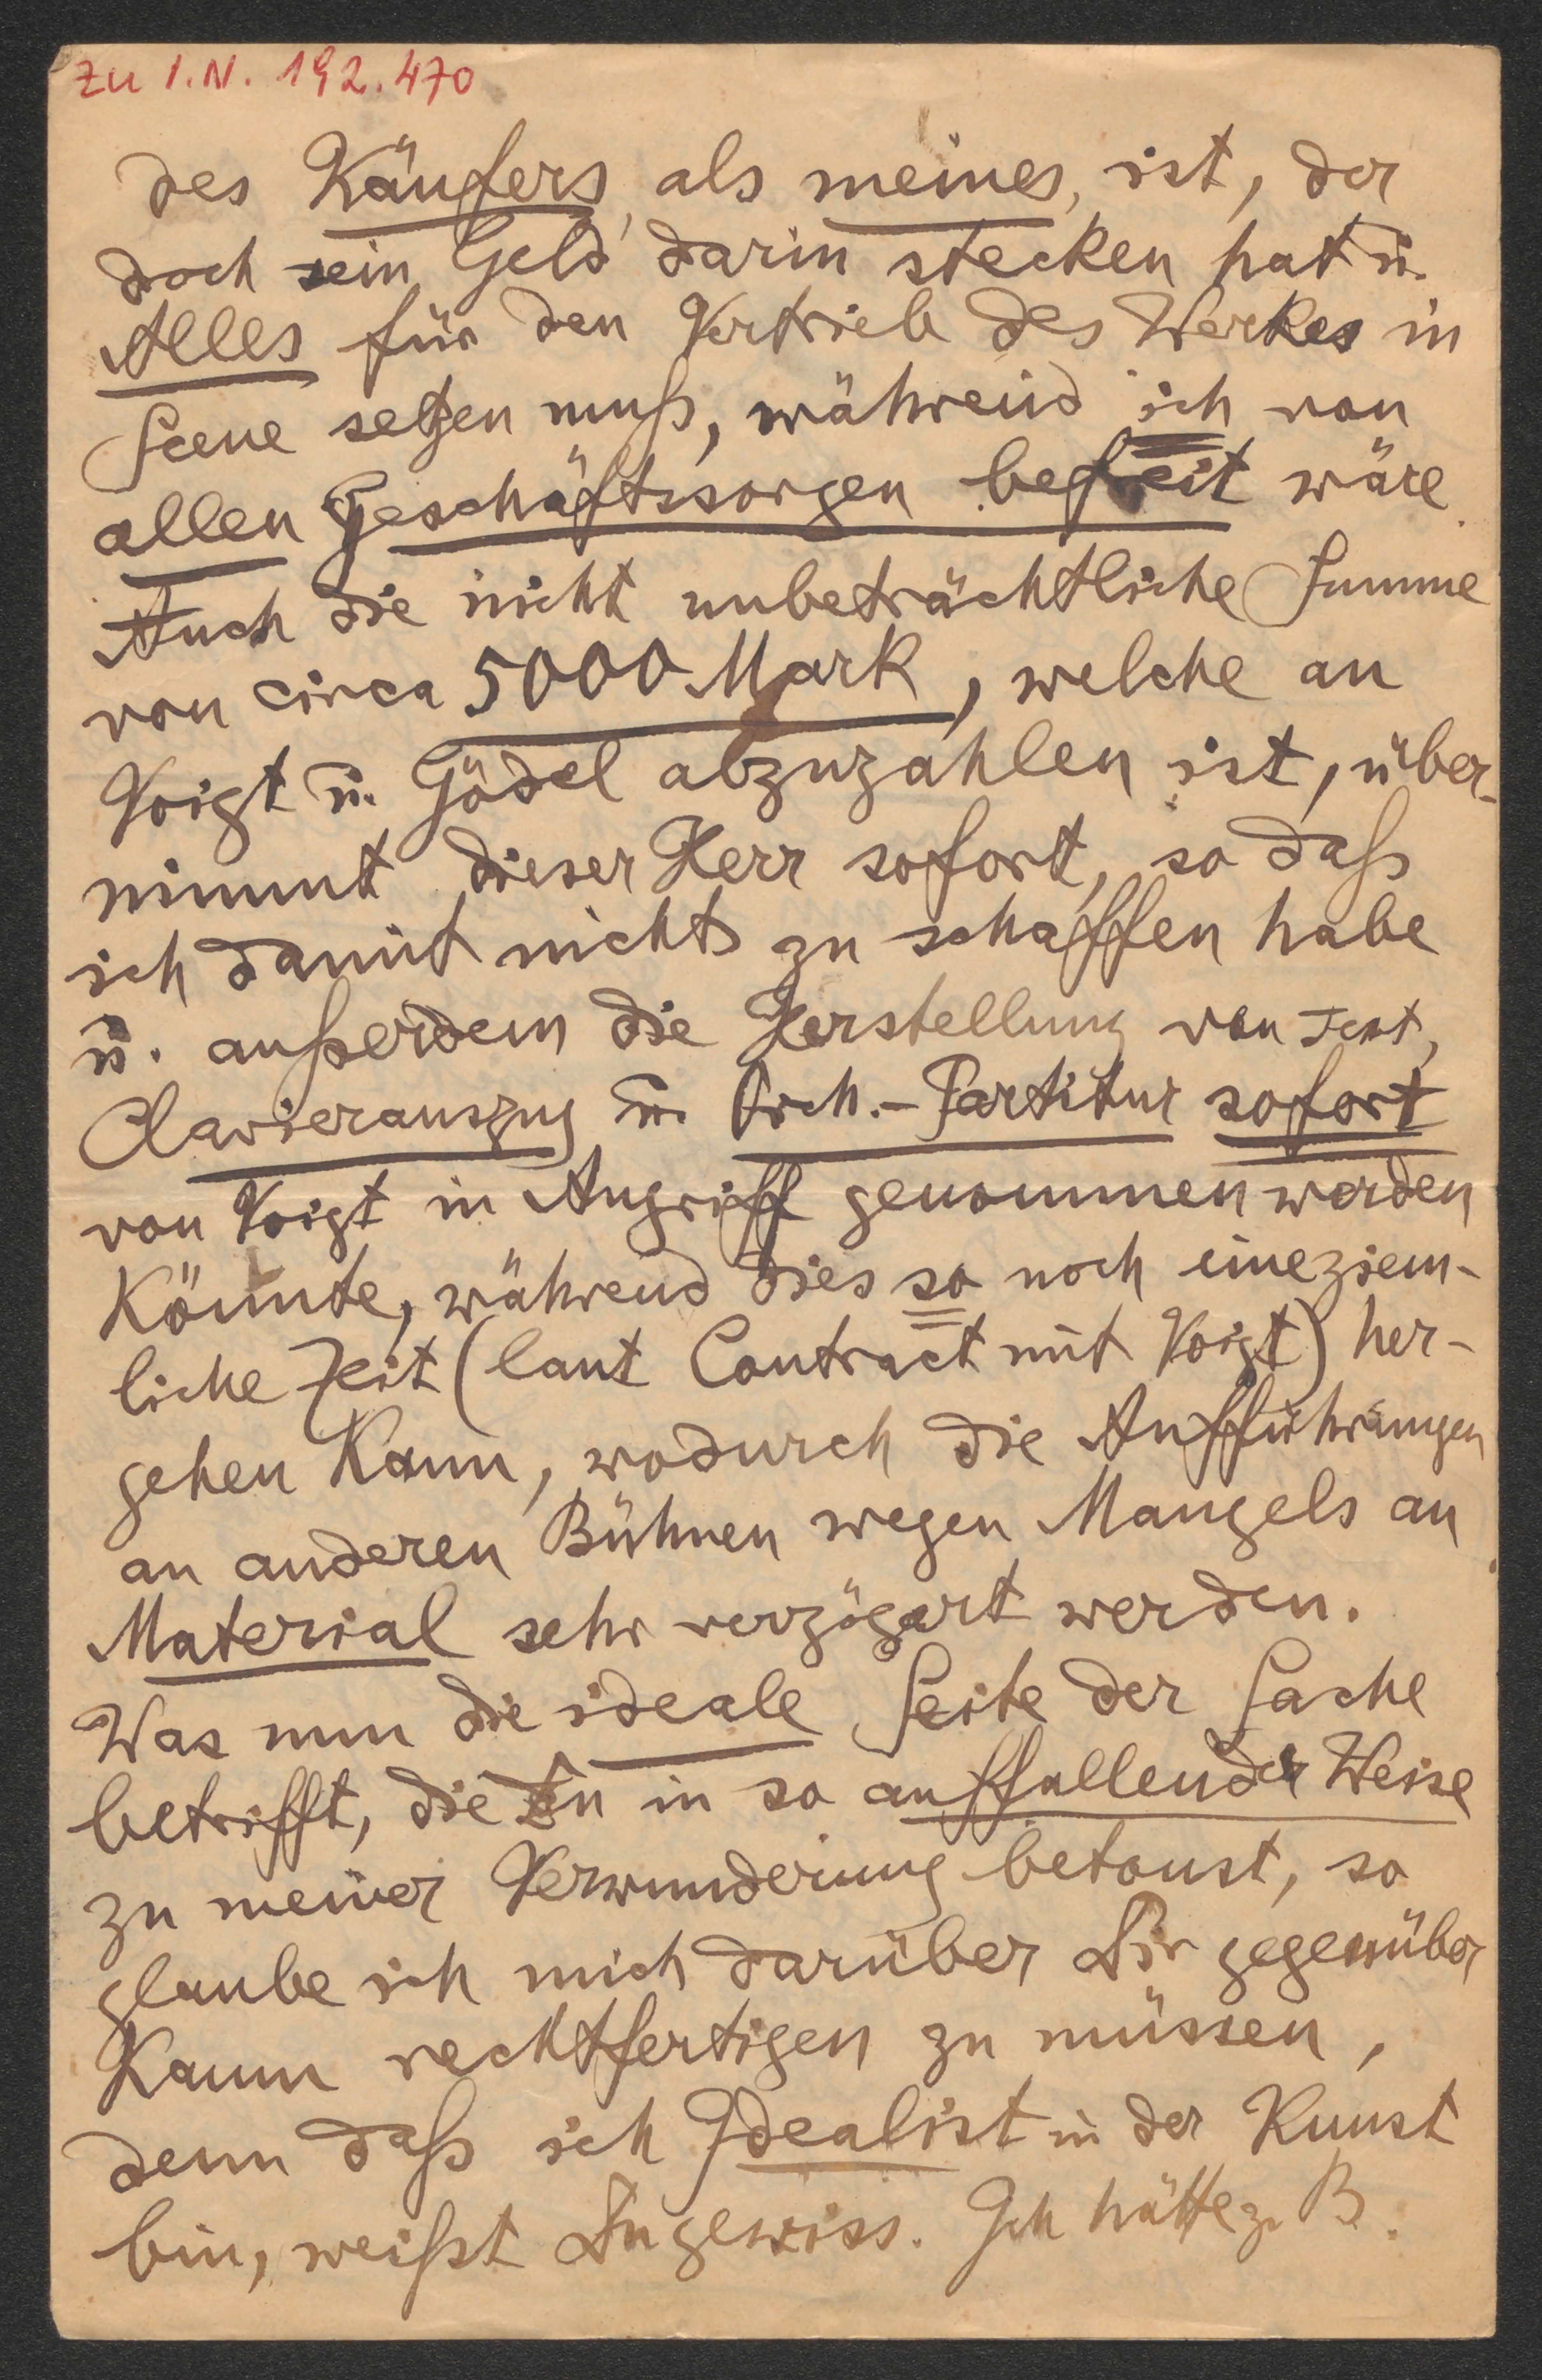 zu I.N. 192.470
des Käufers, als meines, ist, der
doch sein Geld darin stecken hat u.
Alles für den Vertrieb des Werkes in
Scene setzen muß, während ich von
allen Geschäftssorgen befreit wäre.
Auch die nicht unbeträchtliche Summe
von circa 5000 Mark, welche an
Voigt u. Gödel abzuzahlen ist, über-
nimmt dieser Herr sofort, so daß
ich damit nichts zu schaffen habe
u. außerdem die Herstellung von Text,
Clavierauszug u. Orch.-Partitur sofort
von Voigt in Angriff genommen werden
könnte, während dies so noch eine ziem-
liche Zeit (laut Contract mit Voigt) her-
gehen kann, wodurch die Aufführungen
an anderen Bühnen wegen Mangels an
Material sehr verzögert werden.
Was nun die ideale Seite der Sache
betrifft, die Du in so auffallender Weise
zu meiner Verwunderung betonst, so
glaube ich mich darüber Dir gegenüber
kaum rechtfertigen zu müssen,
denn daß ich Idealist in der Kunst
bin, weißt Du gewiss. Ich hätte z. B.